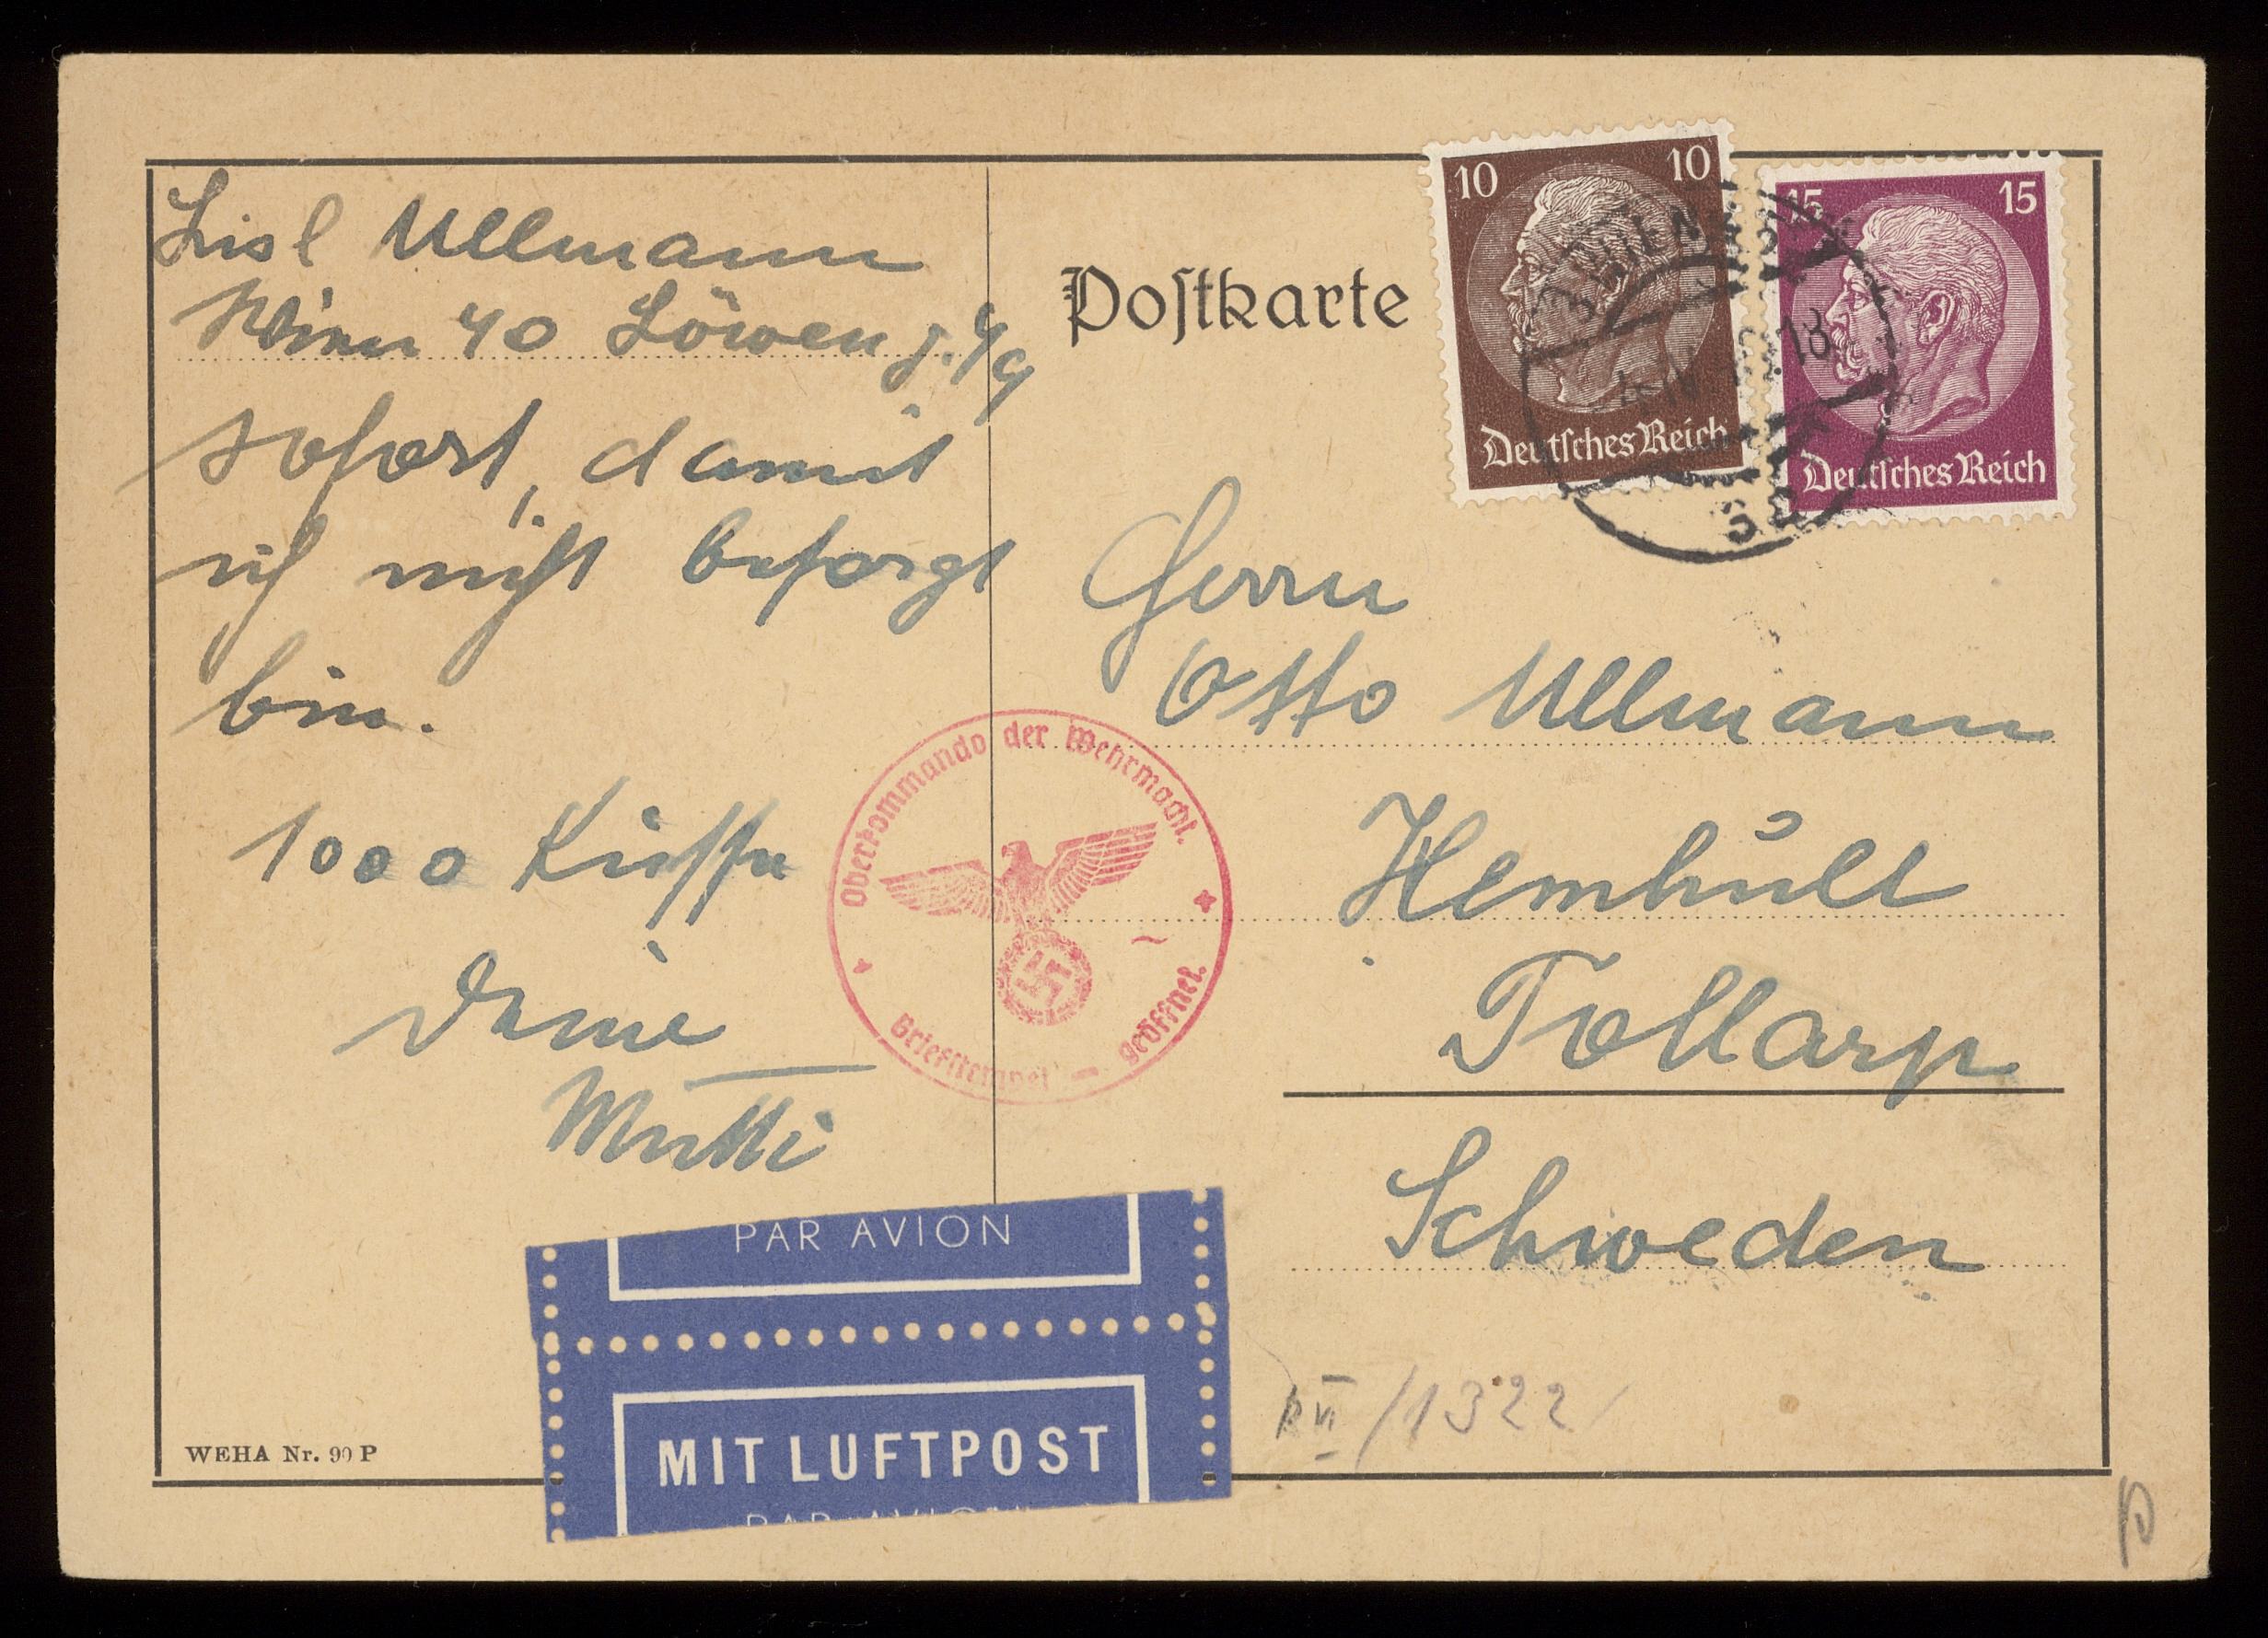 Lisl Ullmann
Wien 40 Löweng. 4/9
sofort, damit
ich nicht besorgt
bin.
1000 Küsse
Deine
Mutti
Postkarte
10 10
Deutsches Reich
15 15
Deutsches Reich
18
Herrn
Otto Ullmann
Hemhult
Tollarp
Schweden
Oberkommando der Wehrmacht.
Briefstempel geöffnet.
PAR AVION
MIT LUFTPOST
PAR AVION
WEHA Nr. 90 P
/1322
p